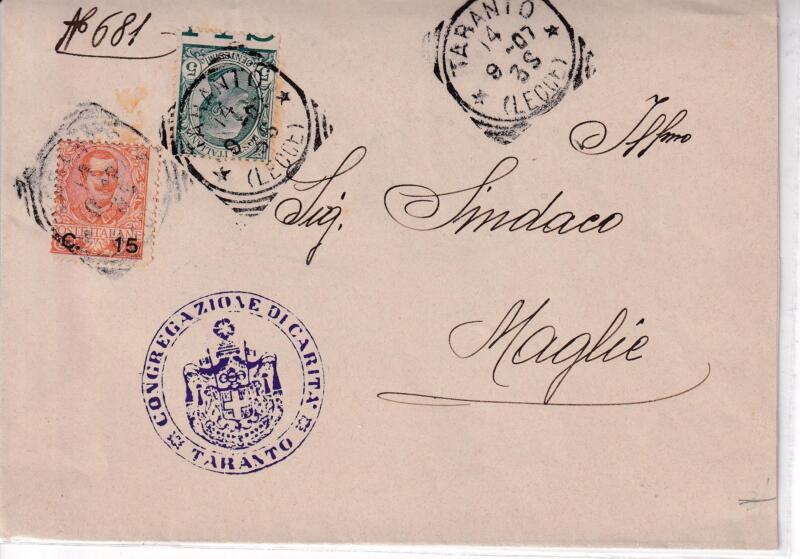 № 681
TARANTO
14
9 -07
3S
(LECCE)
TARANTO
(LECCE)
5
POSTE ITALIANE
C. 15
Illmo
Sig. Sindaco
Maglie
CONGREGAZIONE DI CARITA'
TARANTO